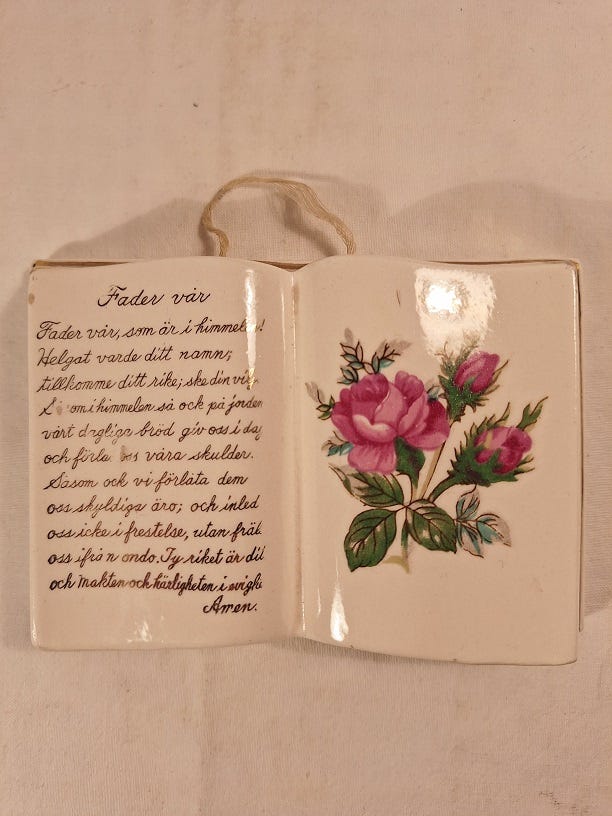 Fader vår
Fader vår, som är i himmelen!
Helgat varde ditt namn;
tillkomme ditt rike; ske din
omi himmelen så ock på jorden
vårt dagliga bröd giv oss i dag
och förlå oss våra skulder.
Såsom ock vi förlåta dem
oss skyldiga äro; och inled
oss icke i frestelse, utan fräls
oss ifrån ondo. Ty riket är dit
och makten och härligheten i evighe
Amen.